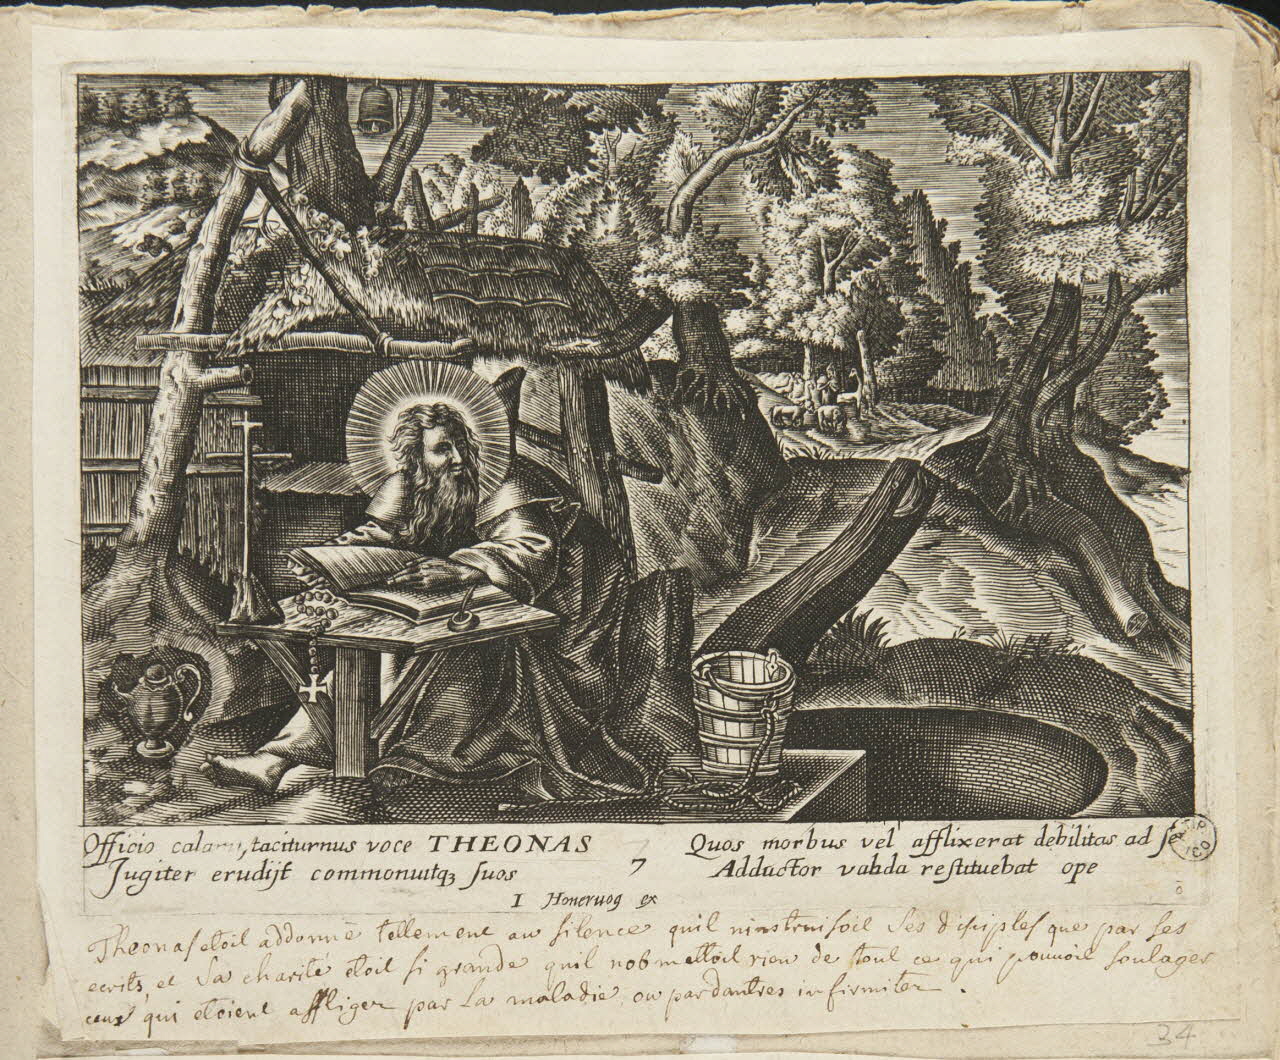 Officio calami, taciturnus voce THEONAS
Jugiter erudijt commonuitqꝫ suos
7
Quos morbus vel afflixerat debilitas ad se
Adductor valida restituebat ope
I Honeruog ex
Theonas etoit addonné tellement au silence quil ninstruisoit ses disciples que par ses
ecrits, et sa charité etoit si grande quil nobmettoit rien de tout ce qui pouvoit soulager
ceux qui etoient affligez par la maladie, ou par dautres infirmitez.
34